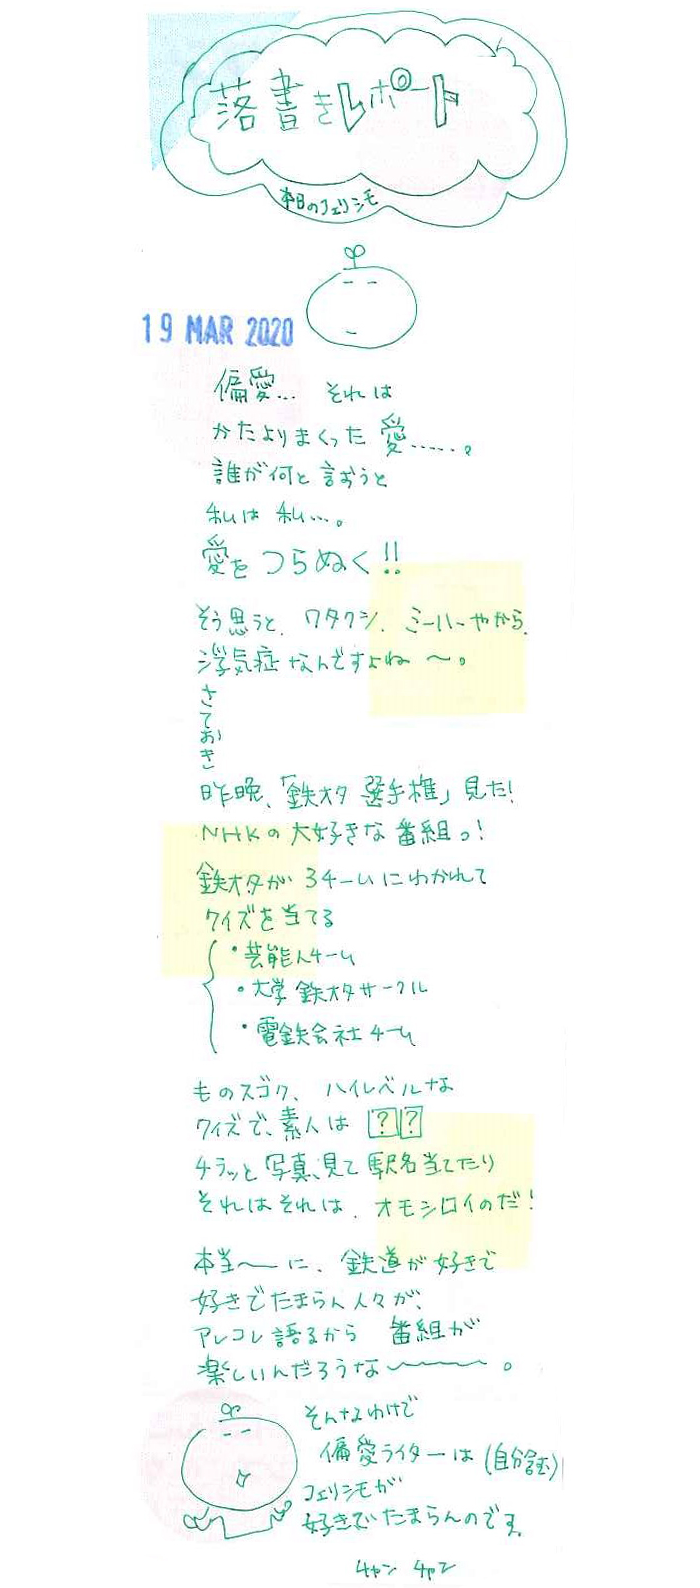 落書きレポート
本日のフェリシモ
19 MAR 2020
偏愛… それは
かたよりまくった 愛……。
誰が何と言おうと
私は 私…。
愛をつらぬく!!
そう思うと、ワタクシ、ミーハーやから、
浮気症なんですよね〜。
さておき
昨晩、「鉄オタ 選手権」見た!
NHKの大好きな番組っ!
鉄オタが 3チームにわかれて
クイズを当てる
・芸能人チーム
・大学 鉄オタサークル
・電鉄会社チーム
ものスゴク、ハイレベルな
クイズで、素人は ??
チラッと写真、見て駅名当てたり
それはそれは、オモシロイのだ!
本当〜に、鉄道が好きで
好きでたまらん人々が、
アレコレ語るから 番組が
楽しいんだろうな〜。
そんなわけで
偏愛ライターは(自分含む)
フェリシモが
好きでたまらんのです。
チャン チャン